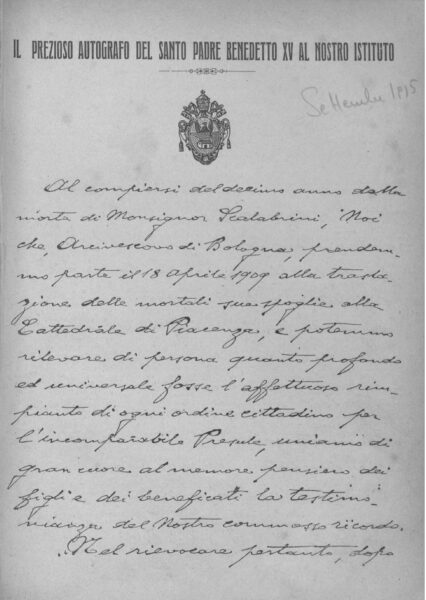 IL PREZIOSO AUTOGRAFO DEL SANTO PADRE BENEDETTO XV AL NOSTRO ISTITUTO
Settembre 1915
Al compiersi del decimo anno dalla
morte di Monsignor Scalabrini, Noi
che, Arcivescovo di Bologna, prendem-
mo parte il 18 Aprile 1909 alla trasla-
zione delle mortali sue spoglie alla
Cattedrale di Piacenza, e potemmo
rilevare di persona quanto profondo
ed universale fosse l'affettuoso rim-
pianto di ogni ordine cittadino per
l'incomparabile Presule, uniamo di
gran cuore al memore pensiero dei
figli e dei beneficati la testimo-
nianza del Nostro commosso ricordo.
Nel rievocare pertanto, dopo